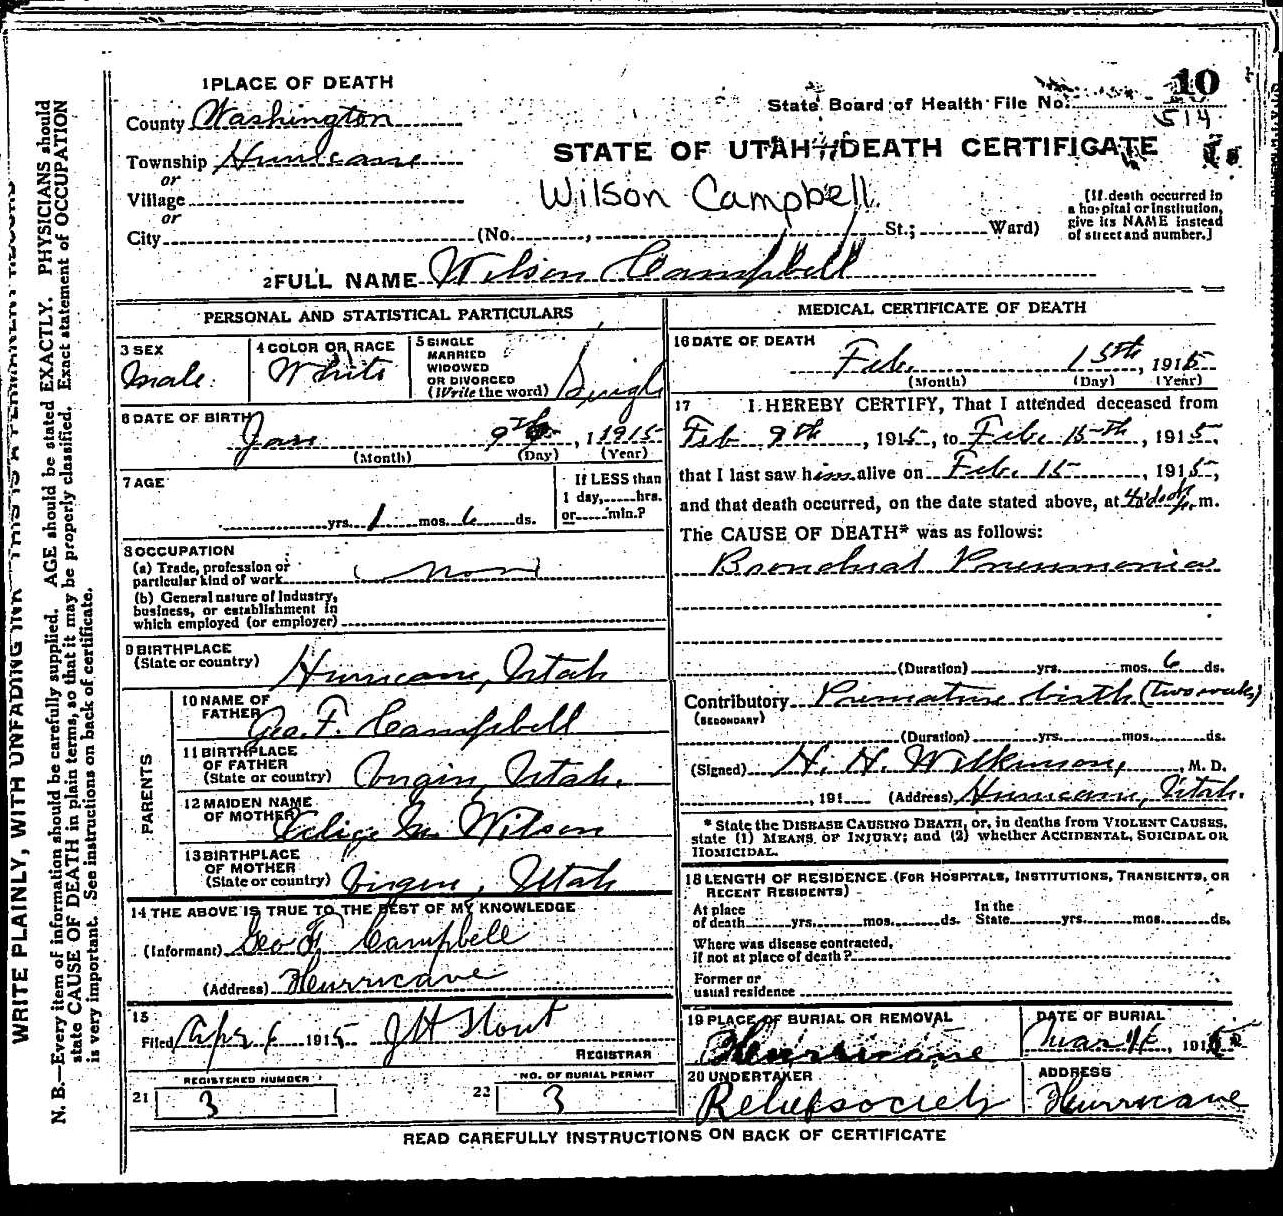 10
1 PLACE OF DEATH
State Board of Health File No.
514
County Washington
STATE OF UTAH—DEATH CERTIFICATE
Township Hurricane
or
Village
Wilson Campbell
[If death occurred in
a hospital or institution,
give its NAME instead
of street and number.]
or
City (No. , St.; Ward)
2 FULL NAME Wilson Campbell
PERSONAL AND STATISTICAL PARTICULARS
3 SEX
Male
4 COLOR OR RACE
White
5 SINGLE
MARRIED
WIDOWED
OR DIVORCED
(Write the word) Single
6 DATE OF BIRTH
Jan 9th, 1 1915
(Month) (Day) (Year)
7 AGE
yrs. 1 mos. 6 ds.
If LESS than
1 day, hrs.
or min.?
8 OCCUPATION
(a) Trade, profession or
particular kind of work
(b) General nature of Industry,
business, or establishment in
which employed (or employer)
9 BIRTHPLACE
(State or country) Hurricane, Utah
PARENTS
10 NAME OF
FATHER Geo. F. Campbell
11 BIRTHPLACE
OF FATHER
(State or country) Virgin, Utah.
12 MAIDEN NAME
OF MOTHER Wilson
13 BIRTHPLACE
OF MOTHER
(State or country) Virgin, Utah
14 THE ABOVE IS TRUE TO THE BEST OF MY KNOWLEDGE
(Informant) Geo F Campbell
(Address) Hurricane
15
Filed Apr 6 1915 JH Stout
REGISTRAR
REGISTERED NUMBER
21 3
NO. OF BURIAL PERMIT
22 3
MEDICAL CERTIFICATE OF DEATH
16 DATE OF DEATH
Feb. 15th, 1915
(Month) (Day) (Year)
17 I HEREBY CERTIFY, That I attended deceased from
Feb 9th, 1915, to Feb. 15th, 1915,
that I last saw him alive on Feb. 15, 1915,
and that death occurred, on the date stated above, at m.
The CAUSE OF DEATH* was as follows:
Bronchial Pneumonia
(Duration) yrs. mos. 6 ds.
Contributory Premature birth (two weeks)
(SECONDARY)
(Duration) yrs. mos. ds.
(Signed) H. H. Wilkinson, M. D.
, 191 (Address) Hurricane, Utah.
* State the DISEASE CAUSING DEATH, or, in deaths from VIOLENT CAUSES,
state (1) MEANS OF INJURY; and (2) whether ACCIDENTAL, SUICIDAL OR
HOMICIDAL.
18 LENGTH OF RESIDENCE (FOR HOSPITALS, INSTITUTIONS, TRANSIENTS, OR
RECENT RESIDENTS)
At place
of death yrs. mos. ds.
In the
State yrs. mos. ds.
Where was disease contracted,
if not at place of death?
Former or
usual residence
19 PLACE OF BURIAL OR REMOVAL
Hurricane
DATE OF BURIAL
Mar 16, 1915
20 UNDERTAKER
Relief society
ADDRESS
Hurricane
READ CAREFULLY INSTRUCTIONS ON BACK OF CERTIFICATE
WRITE PLAINLY, WITH UNFADING INK—THIS IS A PERMANENT RECORD
N. B.—Every item of information should be carefully supplied. AGE should be stated EXACTLY. PHYSICIANS should
state CAUSE OF DEATH in plain terms, so that it may be properly classified. Exact statement of OCCUPATION
is very important. See instructions on back of certificate.